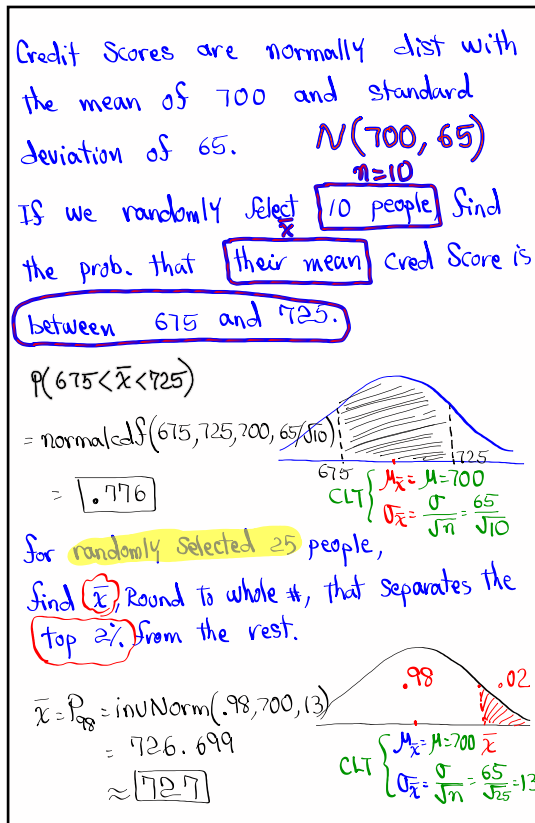 Credit Scores are normally dist with
the mean of 700 and standard
deviation of 65. N(700, 65)
n=10
If we randomly Select 10 people, find
x̄
the prob. that their mean Cred Score is
between 675 and 725.
P(675<x̄<725)
= normalcdf(675,725,700,65/√10)
= .776
675 725
CLT { μx̄ = μ = 700
σx̄ = σ/√n = 65/√10
for randomly Selected 25 people,
find x̄, Round to whole #, that separates the
top 2% from the rest.
.98 .02
x̄ = P98 = invNorm(.98,700,13)
= 726.699
≈ 727
x̄
CLT { μx̄ = μ = 700
σx̄ = σ/√n = 65/√25 = 13